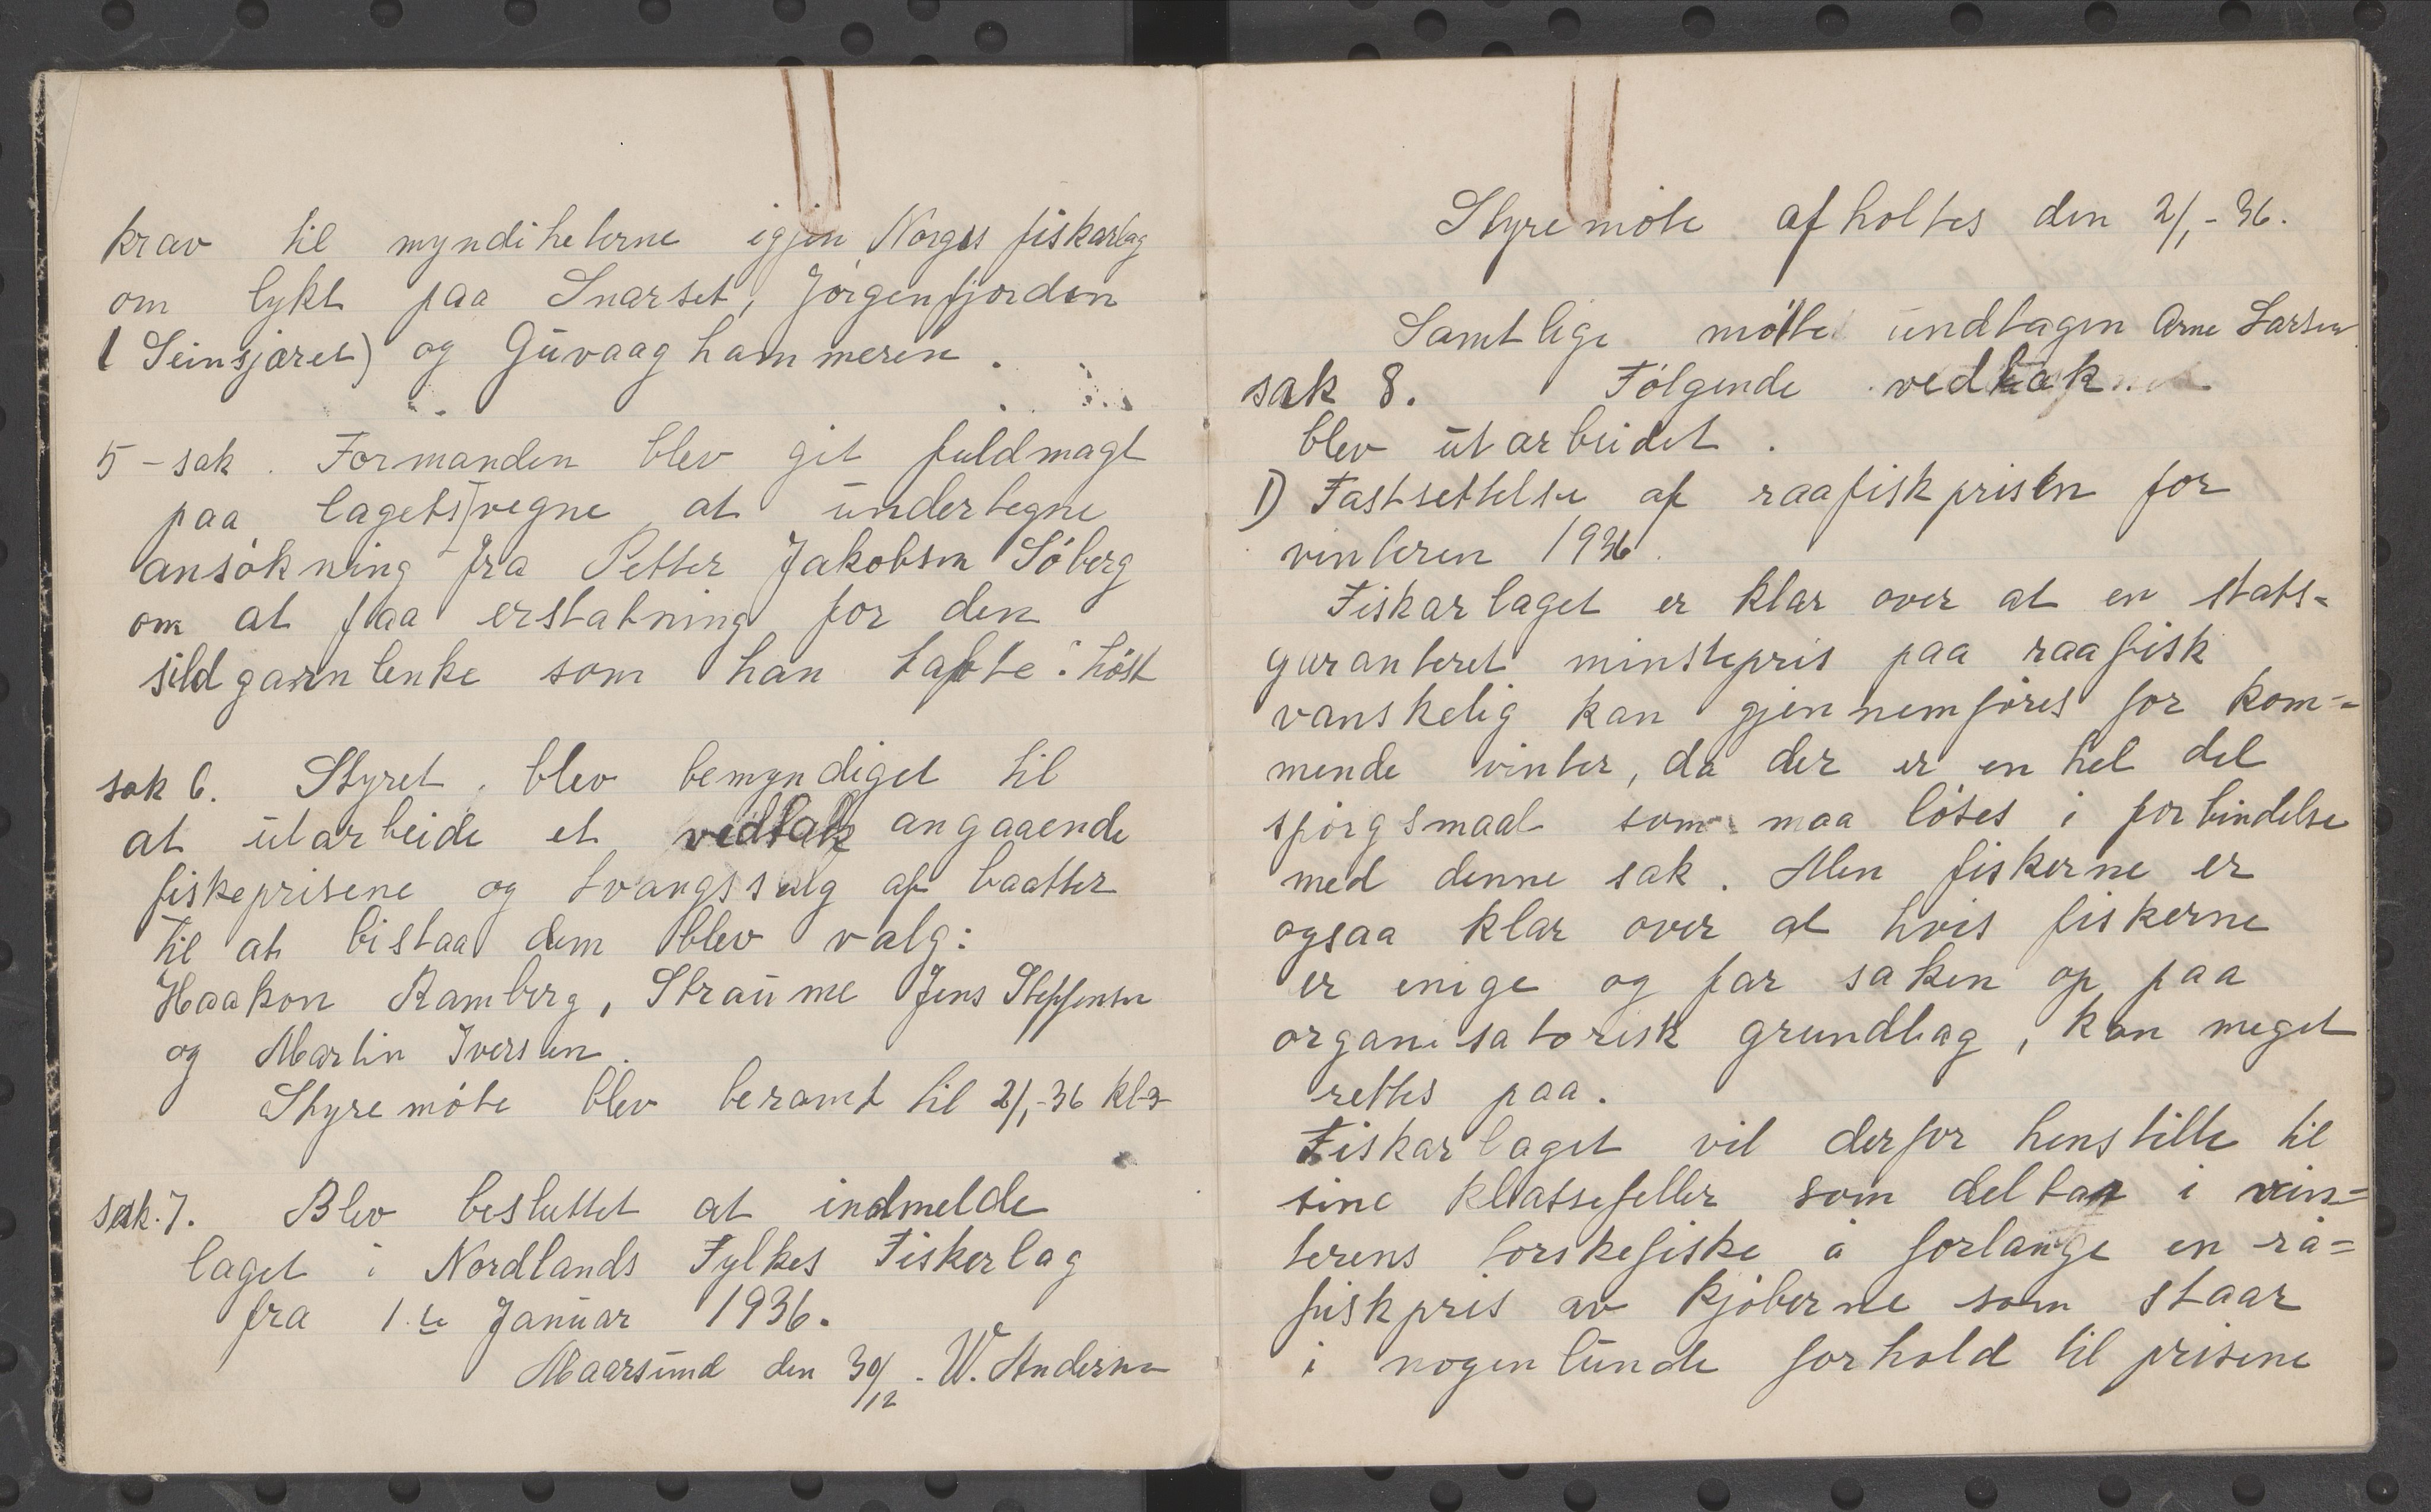 krav til myndiheterne igjen Norges fiskarlag
om lykt paa Snarset, Jörgenfjorden
(Seinsjæret) og Guvaaghammeren.
5 - sak. Formanden blev git fuldmagt
paa lagets vegne at undertegne
ansökning fra Petter Jakobsen Söberg
om at faa erstatning for den
sildgarnlenke som han tapte i höst
sak 6. Styret blev bemyndiget til
at utarbeide et vedtak angaaende
fiskeprisene og tvangssalg af baatter
til at bistaa dem blev valg:
Haakon Ramberg, Straume Jens Steffensen
og Martin Iversen.
Styremöte blev beramt til 2/1-36 kl 3
sak. 7. Blev besluttet at indmelde
laget i Nordlands Fylkes Fiskerlag
fra 1.te Januar 1936.
Maarsund den 30/12 - W. Andersen
Styremöte afholtes den 2/1-36.
Samtlige mötte undtagen Arne Larsen
sak 8. Fölgende vedtak
blev utarbeidet.
1) Fastsettelse af raafiskprisen for
vinteren 1936.
Fiskarlaget er klar over at en stats=
garanteret minstepris paa raafisk
vanskelig kan gjennemföres for kom=
mende vinter, da der er en hel del
spörgsmaal som maa löses i forbindelse
med denne sak. Men fiskerne er
ogsaa klar over at hvis fiskerne
er enige og far saken op paa
organisatorisk grundlag, kan meget
rettes paa.
Fiskarlaget vil derfor henstille til
sine klassefeller som deltar i vin=
terens torskefiske å forlange en rå=
fiskpris av kjöberne som staar
i nogenlunde forhold til prisene